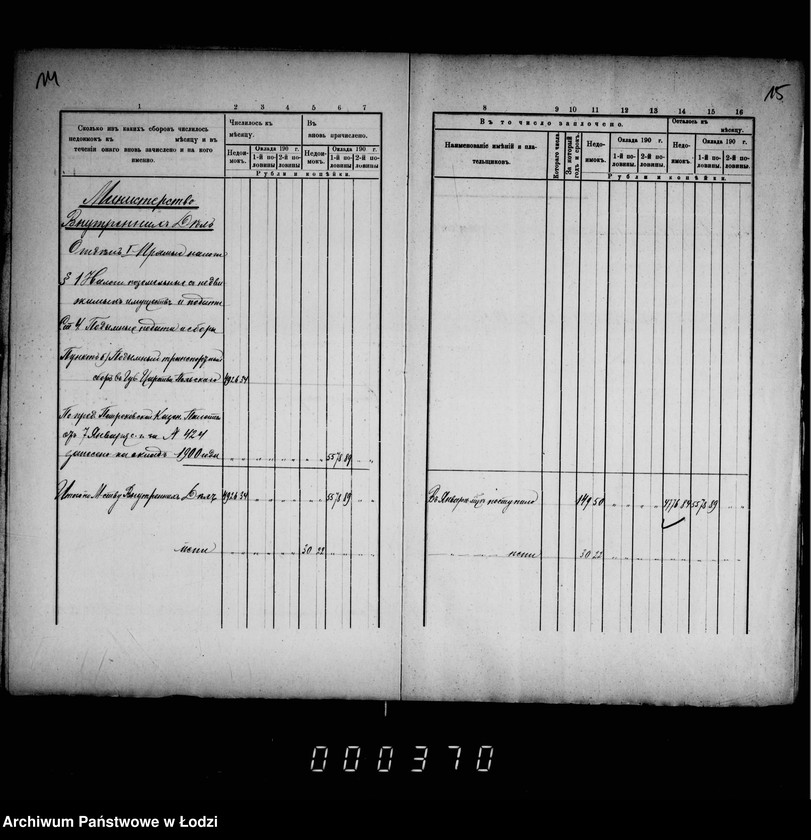 14
1 2 3 4 5 6 7
Сколько изъ какихъ сборовъ числилось
недоимокъ къ мѣсяцу и въ
теченіи онаго вновь зачислено и на кого
именно.
Числилось къ
мѣсяцу.
Въ
вновь причислено.
Недои-
мокъ.
Оклада 190 г.
1-й по-
ловины
2-й по-
ловины
Недои-
мокъ.
Оклада 190 г.
1-й по-
ловины.
2-й по-
ловины.
Рубли и копѣйки.
Министерство
Внутреннихъ Дѣлъ
I Прямые налоги
§ 1 Налоги поземельные съ недви
жимыхъ имуществъ и подати
Ст 4. Подымные подати и сборы
Пунктъ Подымный транспортный
сборъ въ Губ Царства Польскаго 4926 34
По пред. Петроковской Казен. Палаты
отъ 7 Января с. г. за № 424
на окладъ 1900 года 5578 89
Итого по М-ству Внутреннихъ Дѣлъ 4926 34 5578 89
пени 30 22
15
8 9 10 11 12 13 14 15 16
Въ то число
Наименованіе имѣній и пла-
тельщиковъ.
Котораго числа.
За который
годъ и срокъ.
Недо-
имокъ.
Оклада 190 г.
1-й по-
ловины.
2-й по-
ловины.
Осталось къ
мѣсяцу.
Недо-
имокъ.
Оклада 190 г.
1-й по-
ловины.
2-й по-
ловины
Рубли и копѣйки.
Въ Январѣ поступило 149 50 4776 84 5578 89
пени 30 22
000370
Archiwum Państwowe w Łodzi